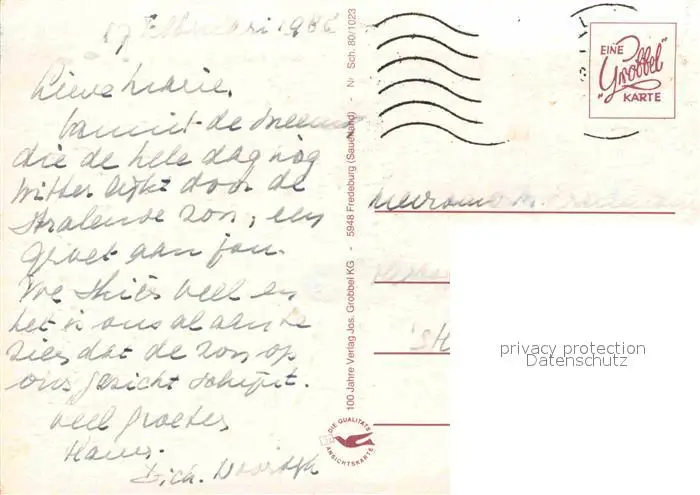 17 Februari 1986
Lieve Marie,
Vanuit de sneeuw
die de hele dag nog
witter lijkt door de
stralende zon, een
groet aan jou.
We skiën veel en
het is ons al aan te
zien dat de zon op
ons gezicht schijnt.
veel groetes
Hans.
Dick. Noordijk
100 Jahre Verlag Jos. Grobbel KG - 5948 Fredeburg (Sauerland) - Nr. Sch. 80/1023
DIE QUALITÄTS
ANSICHTSKARTE
EINE
"Grobbel"
KARTE
Mevrouw
's H
privacy protection
Datenschutz